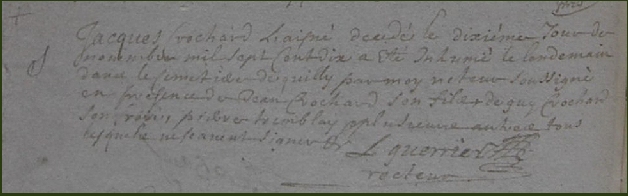 Jacques Crochard Laisné decedée le dixième Jour de
novembre mil sept Cent dix a Eté Inhumé le lendemain
dans le Cemetiere de quilly par moy recteur soussigné
en presence de Jean Crochard son fils de guy Crochard
son frère pierre tremblay plusieurs autres tous
lesquels ne scavent signer
L guerrier
recteur